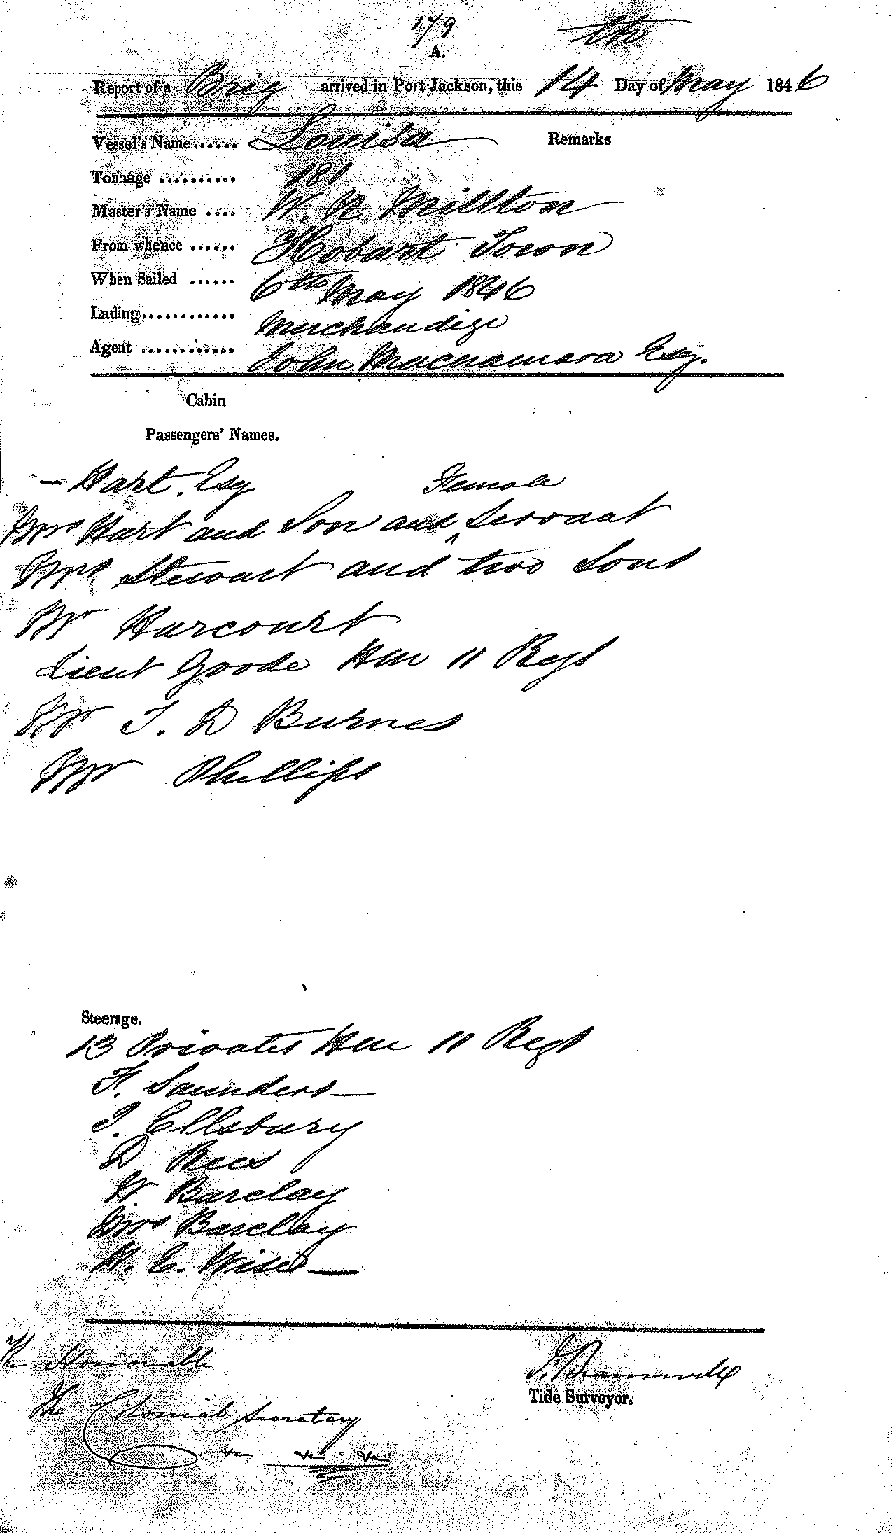 179
th
A.
Report of a Brig arrived in Port Jackson, this 14 Day of May 1846
Vessel's Name...... Louisa Remarks
Tonnage .......... 181
Master's Name .... W. N. Millton
From whence ...... Hobart Town
When Sailed ...... 6th May 1846
Lading............ Merchandize
Agent ............ John Macnamara Esq.
Cabin
Passengers' Names.
— Hart. Esq
Female
Mrs Hart and Son and ^ Servant
Mrs Stewart and two Sons
Mr Harcourt
Lieut Goode Hm 11 Regt
Mr T. D Burnes
Mr Phillips
Steerage.
13 Privates Hm 11 Regt
F. Saunders —
I. Ellsbury
D Rees
W Barclay
Mrs Barclay
H. C. Wise —
The Honorable
The Colonial Secretary
Tide Surveyor.